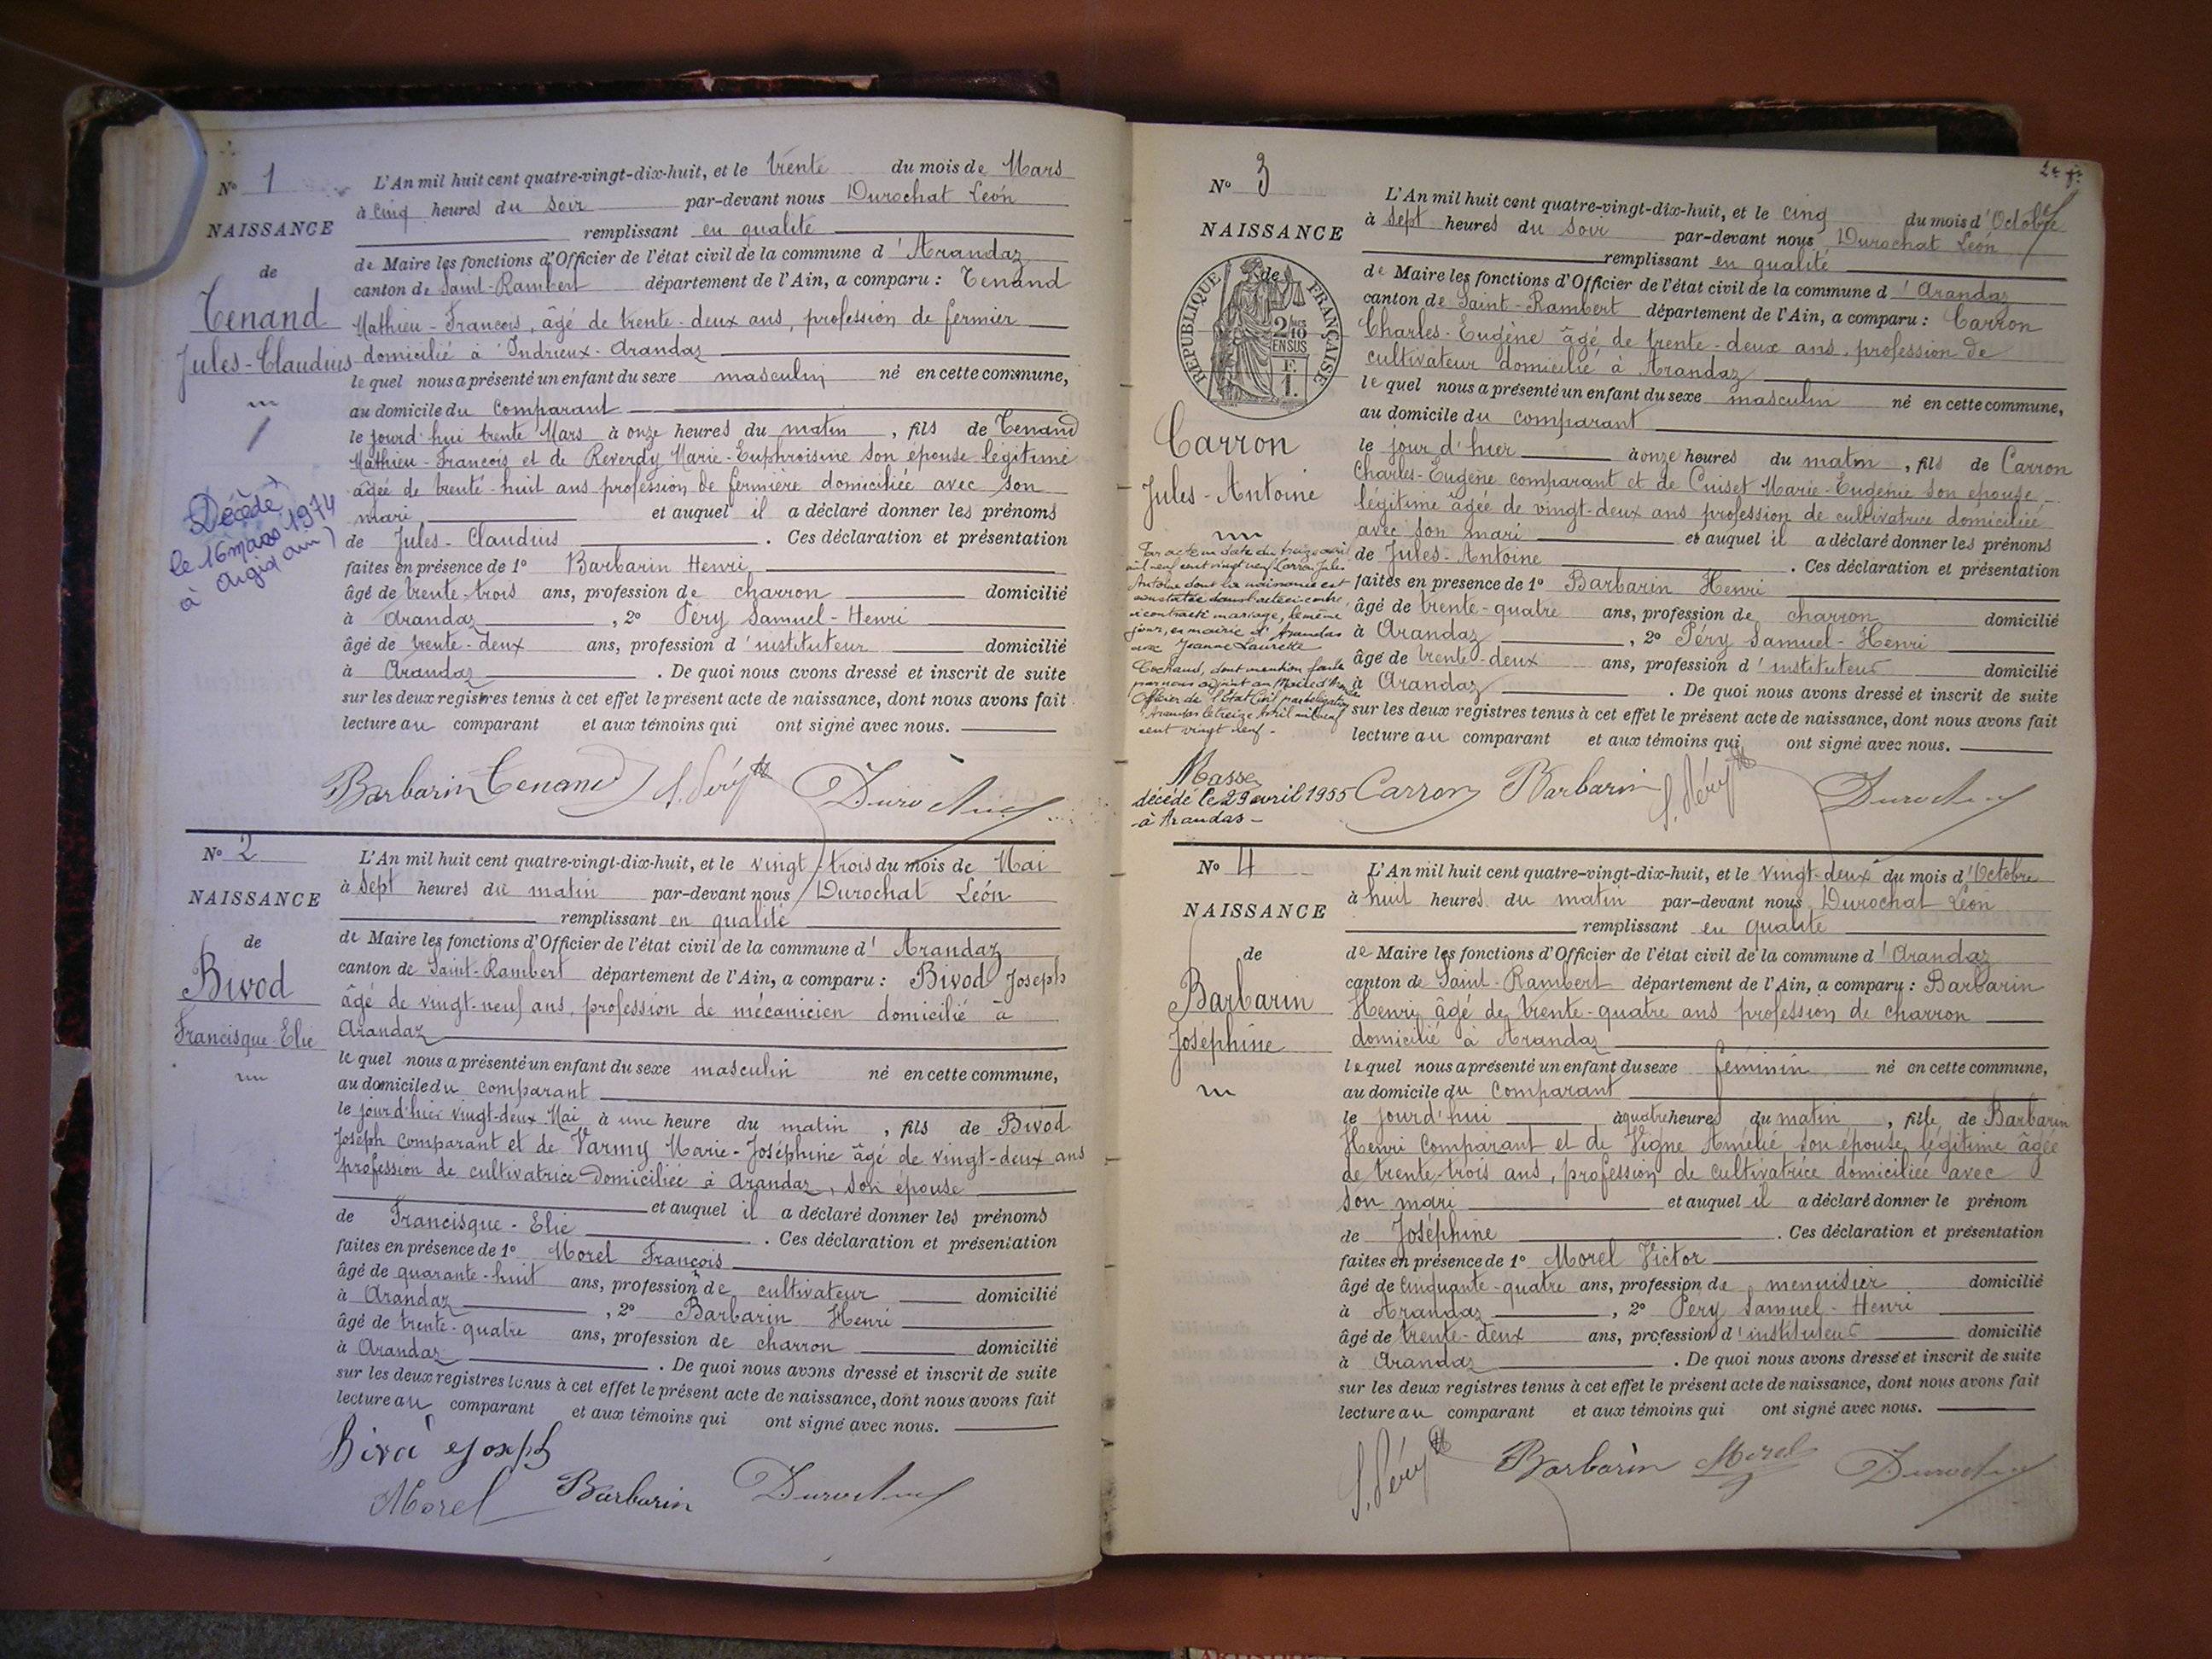 N° 1
NAISSANCE
de
Tenand
Jules-Claudius
Décédé
le 16 mars 1974
à Argis (ain)
L'An mil huit cent quatre-vingt-dix-huit, et le trente du mois de Mars
à cinq heures du soir par-devant nous Durochat Léon
remplissant en qualité
de Maire les fonctions d'Officier de l'état civil de la commune d'Arandaz
canton de Saint-Rambert département de l'Ain, a comparu : Tenand
Mathieu-François, âgé de trente-deux ans, profession de fermier
domicilié à Indrieux-Arandaz
lequel nous a présenté un enfant du sexe masculin né en cette commune,
au domicile du comparant
le jourd'hui trente Mars à onze heures du matin, fils de Tenand
Mathieu-François et de Reverdy Marie-Euphroisine son épouse légitime
âgée de trente-huit ans profession de fermière domiciliée avec son
mari et auquel il a déclaré donner les prénoms
de Jules-Claudius. Ces déclaration et présentation
faites en présence de 1° Barbarin Henri
âgé de trente-trois ans, profession de charron domicilié
à Arandaz, 2° Péry Samuel-Henri
âgé de trente-deux ans, profession d'instituteur domicilié
à Arandaz. De quoi nous avons dressé et inscrit de suite
sur les deux registres tenus à cet effet le présent acte de naissance, dont nous avons fait
lecture au comparant et aux témoins qui ont signé avec nous.
Barbarin Tenand S. Péry Durochat
N° 2
NAISSANCE
de
Bivod
Francisque-Elie
L'An mil huit cent quatre-vingt-dix-huit, et le vingt-trois du mois de Mai
à sept heures du matin par-devant nous Durochat Léon
remplissant en qualité
de Maire les fonctions d'Officier de l'état civil de la commune d'Arandaz
canton de Saint-Rambert département de l'Ain, a comparu : Bivod Joseph
âgé de vingt-neuf ans, profession de mécanicien domicilié à
Arandaz
lequel nous a présenté un enfant du sexe masculin né en cette commune,
au domicile du comparant
le jour d'hier vingt-deux Mai à une heure du matin, fils de Bivod
Joseph comparant et de Varmy Marie-Joséphine âgé de vingt-deux ans
profession de cultivatrice domiciliée à Arandaz, son épouse
et auquel il a déclaré donner les prénoms
de Francisque-Elie. Ces déclaration et présentation
faites en présence de 1° Morel François
âgé de quarante-huit ans, profession de cultivateur domicilié
à Arandaz, 2° Barbarin Henri
âgé de trente-quatre ans, profession de charron domicilié
à Arandaz. De quoi nous avons dressé et inscrit de suite
sur les deux registres tenus à cet effet le présent acte de naissance, dont nous avons fait
lecture au comparant et aux témoins qui ont signé avec nous.
Joseph
Morel Barbarin Durochat
N° 3
NAISSANCE
de
RÉPUBLIQUE FRANÇAISE
2/10 EN SUS
F. 1.
Carron
Jules-Antoine
Par acte en date du treize avril
mil neuf cent vingt neuf Carron Jules
Antoine dont la naissance est
constatée dans l'acte ci-contre,
a contracté mariage, le même
jour, en mairie d'Arandas
avec Jeanne Laurette
Cochaud, dont mention faite
par nous adjoint au Maire d'Arandas
Officier de l'État Civil par délégation
Arandas le treize Avril mil neuf
cent vingt neuf.
Masse
décédé le 29 avril 1955
à Arandas
L'An mil huit cent quatre-vingt-dix-huit, et le cinq du mois d'Octobre
à sept heures du soir par-devant nous Durochat Léon
remplissant en qualité
de Maire les fonctions d'Officier de l'état civil de la commune d'Arandaz
canton de Saint-Rambert département de l'Ain, a comparu : Carron
Charles-Eugène âgé de trente-deux ans, profession de
cultivateur domicilié à Arandaz
lequel nous a présenté un enfant du sexe masculin né en cette commune,
au domicile du comparant
le jour d'hier à onze heures du matin, fils de Carron
Charles-Eugène comparant et de Cuiset Marie-Eugénie son épouse
légitime âgée de vingt-deux ans profession de cultivatrice domiciliée
avec son mari et auquel il a déclaré donner les prénoms
de Jules-Antoine. Ces déclaration et présentation
faites en présence de 1° Barbarin Henri
âgé de trente-quatre ans, profession de charron domicilié
à Arandaz, 2° Péry Samuel-Henri
âgé de trente-deux ans, profession d'instituteur domicilié
à Arandaz. De quoi nous avons dressé et inscrit de suite
sur les deux registres tenus à cet effet le présent acte de naissance, dont nous avons fait
lecture au comparant et aux témoins qui ont signé avec nous.
Carron Barbarin S. Péry Durochat
N° 4
NAISSANCE
de
Barbarin
Joséphine
L'An mil huit cent quatre-vingt-dix-huit, et le vingt-deux du mois d'Octobre
à huit heures du matin par-devant nous Durochat Léon
remplissant en qualité
de Maire les fonctions d'Officier de l'état civil de la commune d'Arandaz
canton de Saint-Rambert département de l'Ain, a comparu : Barbarin
Henri âgé de trente-quatre ans profession de charron
domicilié à Arandaz
lequel nous a présenté un enfant du sexe féminin né en cette commune,
au domicile du comparant
le jourd'hui à quatre heures du matin, fille de Barbarin
Henri comparant et de Vigne Amélie son épouse légitime âgée
de trente-trois ans, profession de cultivatrice domiciliée avec
son mari et auquel il a déclaré donner le prénom
de Joséphine. Ces déclaration et présentation
faites en présence de 1° Morel Victor
âgé de cinquante-quatre ans, profession de menuisier domicilié
à Arandaz, 2° Péry Samuel-Henri
âgé de trente-deux ans, profession d'instituteur domicilié
à Arandaz. De quoi nous avons dressé et inscrit de suite
sur les deux registres tenus à cet effet le présent acte de naissance, dont nous avons fait
lecture au comparant et aux témoins qui ont signé avec nous.
S. Péry Barbarin Morel Durochat